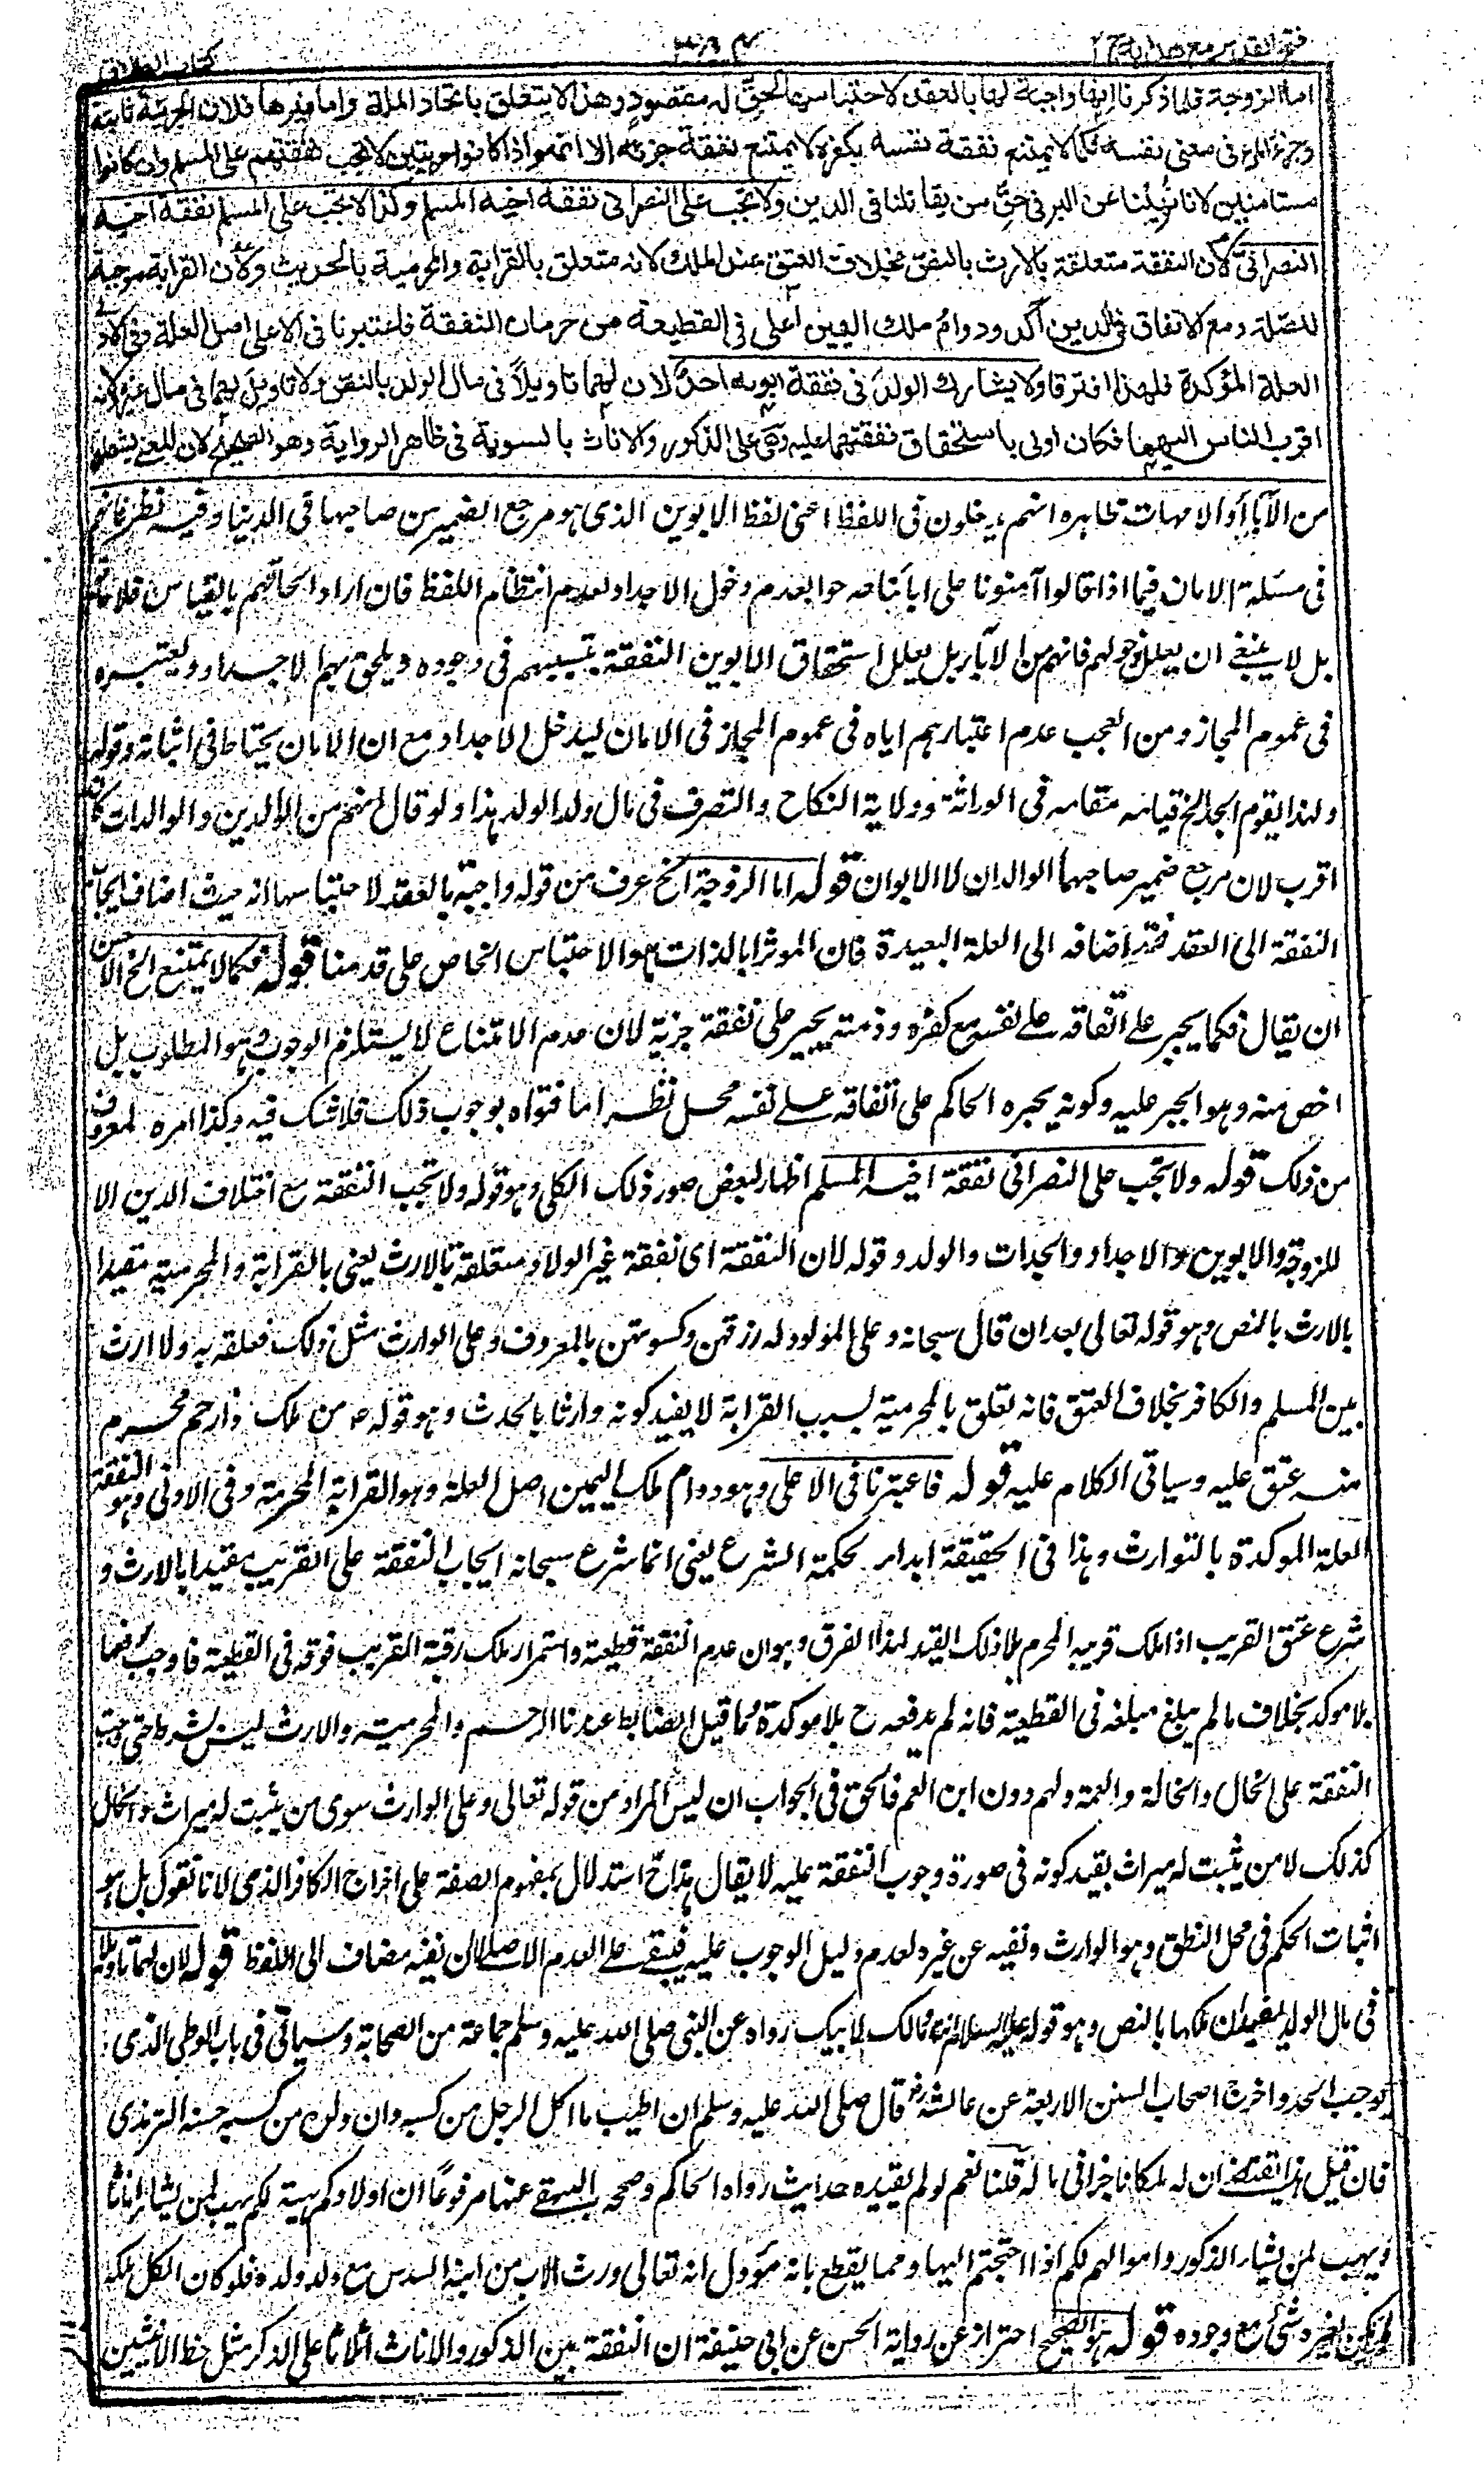 فتح القدير مع هداية ج ٢
كتاب الطلاق
اما الزوجة فلما ذكرنا انها واجبة لها بالعقد لاحتباسها لحق له مقصود وهذا لا يتعلق باتحاد الملة واما غيرها فلان الجزئية ثابتة
وجزء المرء فى معنى نفسه فكما لا يمتنع نفقة نفسه بكفره لا يمتنع نفقة جزئه الا انهم اذا كانوا حربيين لا تجب نفقتهم على المسلم وان كانوا
مستامنين لانا نهينا عن البر فى حق من يقاتلنا فى الدين ولا تجب على النصرانى نفقة اخيه المسلم وكذا لا تجب على المسلم نفقة اخيه
النصرانى لان النفقة متعلقة بالارث بالنص بخلاف العتق عند الملك لانه متعلق بالقرابة والمحرمية بالحديث ولان القرابة موجبة
للصلة ومع الاتفاق فى الدين آكد ودوام ملك اليمين اعلى فى القطيعة من حرمان النفقة فاعتبرنا فى الاعلى اصل العلة وفى الادنى
العلة المؤكدة فلهذا افترقا ولا يشارك الولد فى نفقة ابويه احد لان لهما تاويلا فى مال الولد بالنص ولا تاويل لهما فى مال غيره ولانه
اقرب الناس اليهما فكان اولى باستحقاق نفقتهما عليه وهى على الذكور والاناث بالسوية فى ظاهر الرواية وهو الصحيح لان المعنى يشملهما
من الآباء والامهات ظاهره انهم يدخلون فى اللفظ اعنى لفظ الابوين الذى هو مرجع الضمير من صاحبهما فى الدنيا وفيه نظر فانهم
فى مسئلة الامان فيما اذا قالوا آمنونا على ابائنا صرحوا بعدم دخول الاجداد لعدم انتظام اللفظ فان اراد الحاقهم بالقياس فلا
بل لا ينبغى ان يعلل دخولهم فانهم من الآباء بل يعلل استحقاق الابوين النفقة بتسبيبهم فى وجوده ويلحق بهم الاجداد ويعتبره
فى عموم المجاز ومن العجب عدم اعتبارهم اياه فى عموم المجاز فى الامان ليدخل الاجداد مع ان الامان يحتاط فى اثباته وقوله
ولهذا يقوم الجد الخ قيامه مقامه فى الوراثة وولاية النكاح والتصرف فى مال ولد الولد هذا ولو قال انهم من الوالدين والوالدات كان
اقرب لان مرجع ضمير صاحبهما الوالدان لا الابوان قوله اما الزوجة الخ عرف من قوله واجبة بالعقد لاحتباسها انه حيث اضاف ايجاب
النفقة الى العقد فقد اضافه الى العلة البعيدة فان الموثر بالذات هو الاحتباس الخاص على قدمنا قوله فكما لا يمتنع الخ الاحسن
ان يقال فكما يجبر على انفاقه على نفسه مع كفره وذمته يجبر على نفقة جزئه لان عدم الامتناع لا يستلزم الوجوب وهو المطلوب بل
اخص منه وهو الجبر عليه وكونه يجبره الحاكم على انفاقه على نفسه محل نظر اما فتواه بوجوب ذلك فلا شك فيه وكذا امره بمعروف
من ذلك قوله ولا تجب على النصرانى نفقة اخيه المسلم اظهار لبعض صور ذلك الكلى وهو قوله ولا تجب النفقة مع اختلاف الدين الا
للزوجة والابوين والاجداد والجدات والولد وقوله لان النفقة اى نفقة غير الولاد متعلقة بالارث يعنى بالقرابة والمحرمية مقيدا
بالارث بالنص وهو قوله تعالى بعد ان قال سبحانه وعلى المولود له رزقهن وكسوتهن بالمعروف وعلى الوارث مثل ذلك فعلقه به ولا ارث
بين المسلم والكافر بخلاف العتق فانه تعلق بالمحرمية لسبب القرابة لا يفيد كونه وارثا بالحدث وهو قوله من ملك ذا رحم محرم
منه عتق عليه وسياتى الكلام عليه قوله فاعتبرنا فى الاعلى وهو دوام ملك اليمين اصل العلة وهو القرابة المحرمة وفى الاولى وهو النفقة
العلة الموكدة بالتوارث وهذا فى الحقيقة ابداء لحكمة الشرع يعنى انما شرع سبحانه ايجاب النفقة على القريب مقيدا بالارث و
شرع عتق القريب اذا ملك قريبه المحرم بلا ذلك القيد لهذا الفرق وهو ان عدم النفقة قطيعة واستمرار ملك رقبة القريب فوقه فى القطيعة فاوجب رفعها
بلا موكد بخلاف ما لم يبلغ مبلغه فى القطيعة فانه لم يدفعه ح بلا موكدة فما قيل الضابط عندنا الرحم والمحرمية والارث ليس بشرط حتى وجبت
النفقة على الخال والخالة والعمة ولهم دون ابن العم فالحق فى الجواب ان ليس المراد من قوله تعالى وعلى الوارث سوى من يثبت له ميراث والخال
كذلك لا من يثبت له ميراث بقيد كونه فى صورة وجوب النفقة عليه لا يقال هذا ح استدلال بمفهوم الصفة على اخراج الكافر الذمى لانا نقول بل هو
اثبات الحكم فى محل النطق وهو الوارث ونفيه عن غيره لعدم دليل الوجوب عليه فيبقى على العدم الاصلى لا ان نفيه مضاف الى اللفظ قوله لان لهما تاويلا
فى مال الولد بالنص وهو قوله عليه السلام انت ومالك لابيك رواه عن النبى صلى الله عليه وسلم جماعة من الصحابة وسياتى فى باب الوطى الذى
يوجب الحد واخرج اصحاب السنن الاربعة عن عائشة قال صلى الله عليه وسلم ان اطيب ما اكل الرجل من كسبه وان ولده من كسبه حسنه الترمذى
فان قيل هذا يقتضى ان له ملكا ناجزا فى ماله قلنا نعم لو لم يقيده حديث رواه الحاكم وصححه والبيهقى عنها مرفوعا ان اولادكم هبة لكم يهب لمن يشاء اناثا
ويهب لمن يشاء الذكور واموالهم لكم اذا احتجتم اليها ومما يقطع بانه مؤول انه تعالى ورث الاب من ابنه السدس مع ولد ولده فلو كان الكل ملكه
لم يكن لغيره شئ مع وجوده قوله هو الصحيح احتراز عن رواية الحسن عن ابى حنيفة ان النفقة بين الذكور والاناث اثلاثا على الذكر مثل حظ الانثيين